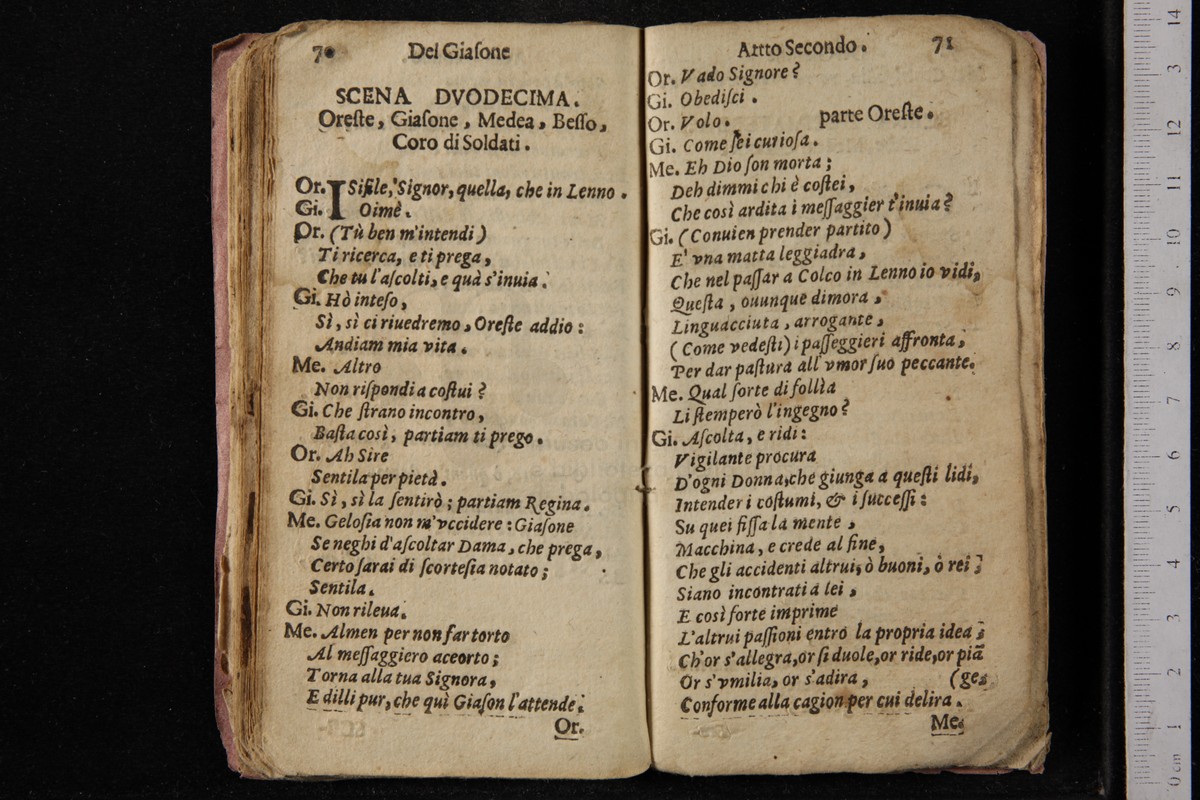 70 Del Giaſone
SCENA DVODECIMA.
Oreſte, Giaſone, Medea, Beſſo,
Coro di Soldati.
Or. ISifile, Signor, quella, che in Lenno.
Gi. Oimè.
Or. (Tù ben m'intendi)
Ti ricerca, e ti prega,
Che tu l'aſcolti, e quà s'inuia.
Gi. Hò inteſo,
Sì, sì ci riuedremo, Oreſte addio:
Andiam mia vita.
Me. Altro
Non riſpondi a coſtui?
Gi. Che ſtrano incontro,
Baſta così, partiam ti prego.
Or. Ah Sire
Sentila per pietà.
Gi. Sì, sì la ſentirò; partiam Regina.
Me. Geloſia non m'vccidere: Giaſone
Se neghi d'aſcoltar Dama, che prega,
Certo ſarai di ſcorteſia notato;
Sentila.
Gi. Non rileua.
Me. Almen per non far torto
Al meſſaggiero aceorto;
Torna alla tua Signora,
E dilli pur, che quì Giaſon l'attende.
Or.
Attto Secondo. 71
Or. Vado Signore?
Gi. Obediſci.
Or. Volo. parte Oreſte.
Gi. Come ſei curioſa.
Me. Eh Dio ſon morta;
Deh dimmi chi è coſtei,
Che così ardita i meſſaggier t'inuia?
Gi. (Conuien prender partito)
E' vna matta leggiadra,
Che nel paſſar a Colco in Lenno io vidi,
Queſta, ouunque dimora,
Linguacciuta, arrogante,
(Come vedeſti) i paſſeggieri affronta,
Per dar paſtura all' vmor ſuo peccante.
Me. Qual ſorte di follìa
Li ſtemperò l'ingegno?
Gi. Aſcolta, e ridi:
Vigilante procura
D'ogni Donna, che giunga a queſti lidi,
Intender i coſtumi, & i ſucceſſi:
Su quei fiſſa la mente,
Macchina, e crede al fine,
Che gli accidenti altrui, ò buoni, ò rei;
Siano incontrati a lei,
E così forte imprime
L'altrui paſſioni entro la propria idea;
Ch'or s'allegra, or ſi duole, or ride, or piã
Or s'vmilia, or s'adira, (ge,
Conforme alla cagion per cui delira.
Me.